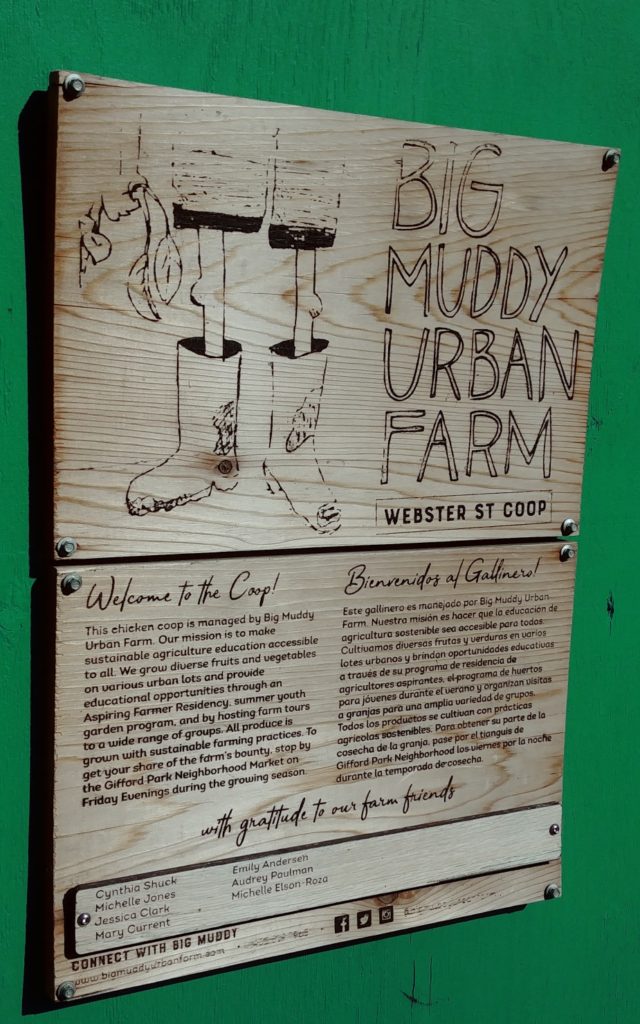 BIG
MUDDY
URBAN
FARM
WEBSTER ST COOP
Welcome to the Coop!
This chicken coop is managed by Big Muddy
Urban Farm. Our mission is to make
sustainable agriculture education accessible
to all. We grow diverse fruits and vegetables
on various urban lots and provide
educational opportunities through an
Aspiring Farmer Residency, summer youth
garden program, and by hosting farm tours
to a wide range of groups. All produce is
grown with sustainable farming practices. To
get your share of the farm's bounty, stop by
the Gifford Park Neighborhood Market on
Friday Evenings during the growing season.
Bienvenidos al Gallinero!
Este gallinero es manejado por Big Muddy Urban
Farm. Nuestra misión es hacer que la educación de
agricultura sostenible sea accesible para todos.
Cultivamos diversas frutas y verduras en varios
lotes urbanos y brindan oportunidades educativas
a través de su programa de residencia de
agricultores aspirantes, el programa de huertos
para jóvenes durante el verano y organizan visitas
a granjas para una amplia variedad de grupos.
Todos los productos se cultivan con prácticas
agrícolas sostenibles. Para obtener su parte de la
cosecha de la granja, pase por el tianguis de
Gifford Park Neighborhood los viernes por la noche
durante la temporada de cosecha.
with gratitude to our farm friends
Cynthia Shuck
Michelle Jones
Jessica Clark
Mary Current
Emily Andersen
Audrey Paulman
Michelle Elson-Roza
CONNECT WITH BIG MUDDY
www.bigmuddyurbanfarm.com